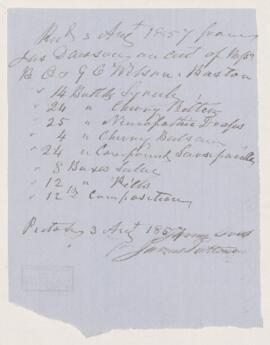 Recd 3 Augt 1857 from
Jas Dawson on act of Messrs
B O & G C Wilson Boston
" 14 Bottles Syrup
" 24 " Cherry Bitters
" 25 " Neuropathic Drops
" 4 " Cherry Balsam
" 24 " Compound Sarsaparilla
" 8 Boxes Salve
" 12 " Pills
" 12 lb Composition
Pictou 3 Augt 1857
James